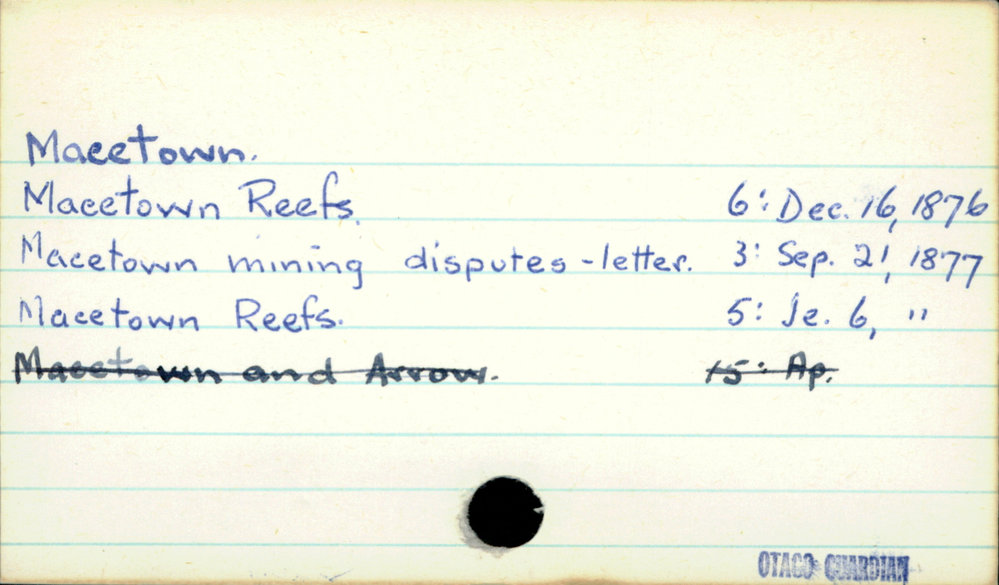 Macetown.
Macetown Reefs. 6: Dec. 16, 1876
Macetown mining disputes - letter. 3: Sep. 21, 1877
Macetown Reefs. 5: Je. 6, "
Macetown and Arrow. 15: Ap.
OTAGO GUARDIAN